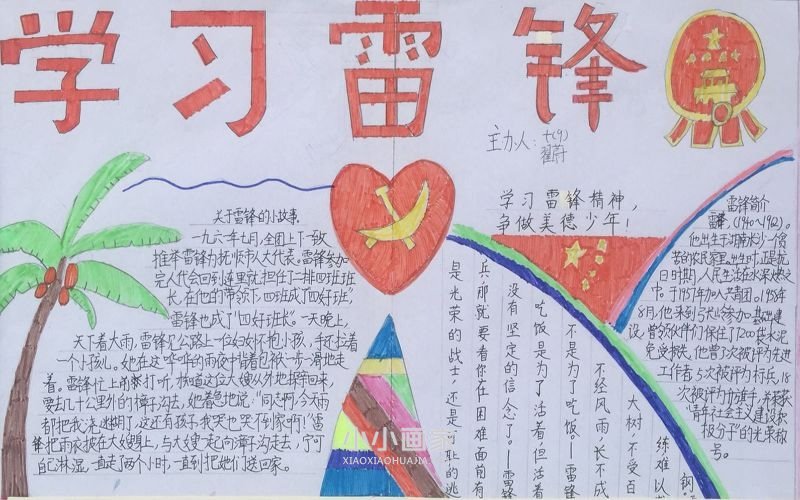 学习雷锋
主办人：七(9)
翟蔚
学习雷锋精神，
争做美德少年！
关于雷锋的小故事
一九六一年七月，全团上下一致
推举雷锋为抚顺市人大代表。雷锋参加
完人代会回到连里就担任了二排四班班
长，在他的带领下，四班成了“四好班”，
雷锋也成了“四好班长”。一天晚上，
天下着大雨，雷锋见公路上一位妇女怀抱小孩，手还拉着
一个小孩儿。她在这哗哗的雨夜中背着包被一步一滑地走
着。雷锋忙上前打听，才知道这位大嫂从外地探亲回来，
要去几十公里外的樟子沟去，她着急地说：“同志啊，今天雨
都把我浇迷糊了，这还有孩子，我哭也哭不到家啊！”雷
锋把雨衣披在大嫂身上，与大嫂一起向樟子沟走去，宁可
自己淋湿，一直走了两个小时，一直到把她们送回家。
雷锋简介
雷锋，(1940～1962)。
他出生于湖南长沙一个贫
苦的农民家里，出生时，正是抗
日时期，人民生活在水深火热之
中。于1957年加入共青团。1958年
8月，他来到弓长岭参加基础建
设，曾领伙伴们保住了7200袋水泥
免受损失，他曾3次被评为先进
工作者，5次被评为标兵，18
次被评为红旗手，并获
“青年社会主义建设积
极分子”的光荣称
号。
钢
练难以
大树，不受百
不经风雨长不成
不是为了吃饭。—雷锋
吃饭是为了活着，但活着
没有坚定的信念了。—雷锋
兵，那就要看你在困难面前有
是光荣的战士，还是可耻的逃
小小画家
XIAOXIAOHUAJIA.